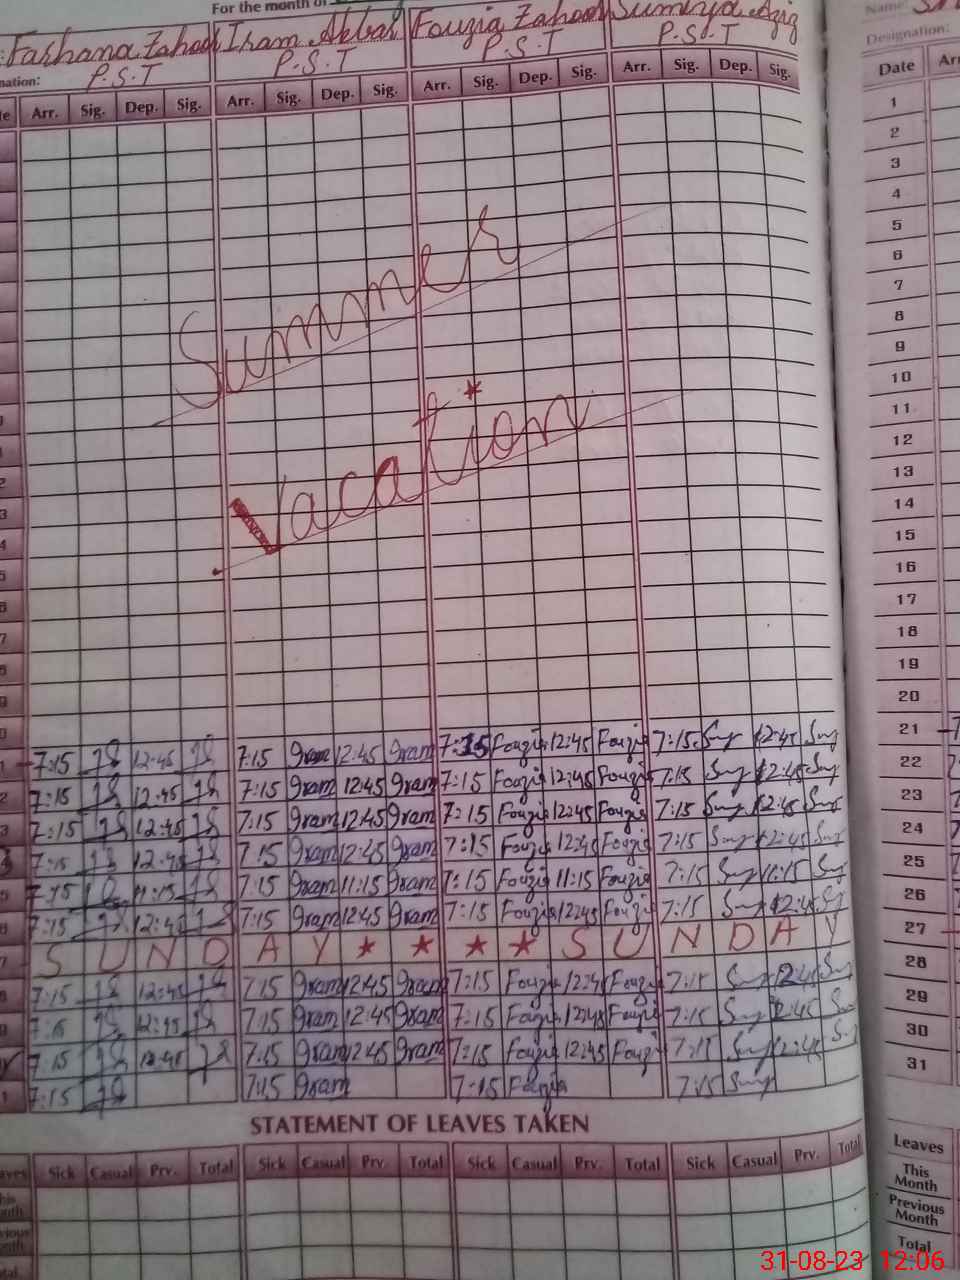 For the month of
Farhana Zahoor Iram Akbar Fouzia Zahoor Sumiya Aziz Name:
nation: P.S.T P.S.T P.S.T P.S.T Designation:
te Arr. Sig. Dep. Sig. Arr. Sig. Dep. Sig. Arr. Sig. Dep. Sig. Arr. Sig. Dep. Sig. Date Arr
1
2
3
4
5
6
7
8
9
10
11
12
13
14
15
16
17
18
19
20
Summer
Vacation
7:15 12:45 7:15 Iram 12:45 Iram 7:15 Fouzia 12:45 Fouzia 7:15 Sum 12:45 Sum 21
7:15 12:45 7:15 Iram 12:45 Iram 7:15 Fouzia 12:45 Fouzia 7:15 Sum 12:45 Sum 22
7:15 12:45 7:15 Iram 12:45 Iram 7:15 Fouzia 12:45 Fouzia 7:15 Sum 12:45 Sum 23
7:15 12:45 7:15 Iram 12:45 Iram 7:15 Fouzia 12:45 Fouzia 7:15 Sum 12:45 Sum 24
7:15 11:15 7:15 Iram 11:15 Iram 7:15 Fouzia 11:15 Fouzia 7:15 Sum 11:15 Sum 25
7:15 12:45 7:15 Iram 12:45 Iram 7:15 Fouzia 12:45 Fouzia 7:15 Sum 12:45 26
S U N D A Y * * * * S U N D A Y 27
7:15 12:45 7:15 Iram 12:45 Iram 7:15 Fouzia 12:45 Fouzia 7:15 Sum 12:45 Sum 28
7:15 12:45 7:15 Iram 12:45 Iram 7:15 Fouzia 12:45 Fouzia 7:15 Sum 12:45 Sum 29
7:15 12:45 7:15 Iram 12:45 Iram 7:15 Fouzia 12:45 Fouzia 7:15 Sum 12:45 Sum 30
7:15 7:15 Iram 7:15 Fouzia 7:15 Sum 31
STATEMENT OF LEAVES TAKEN
aves Sick Casual Prv. Total Sick Casual Prv. Total Sick Casual Prv. Total Sick Casual Prv. Total Leaves
This Month
Previous Month
Total
31-08-23 12:06